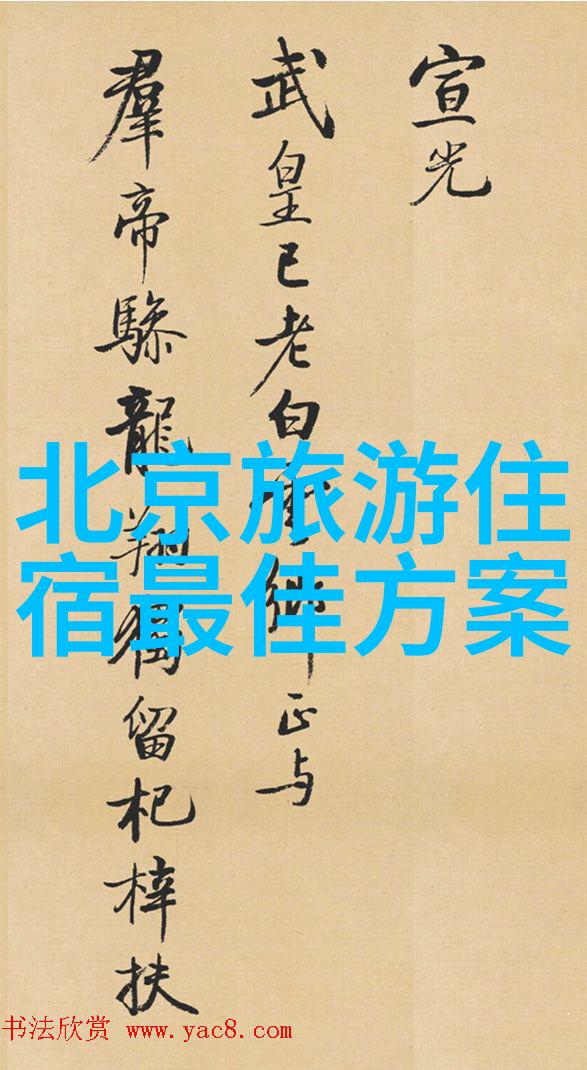 宣光
武皇已老白雲鄉正与
羣帝驂龍翔獨留杞梓扶
北京旅游住
宿最佳方案
书法欣赏 www.yac8.com